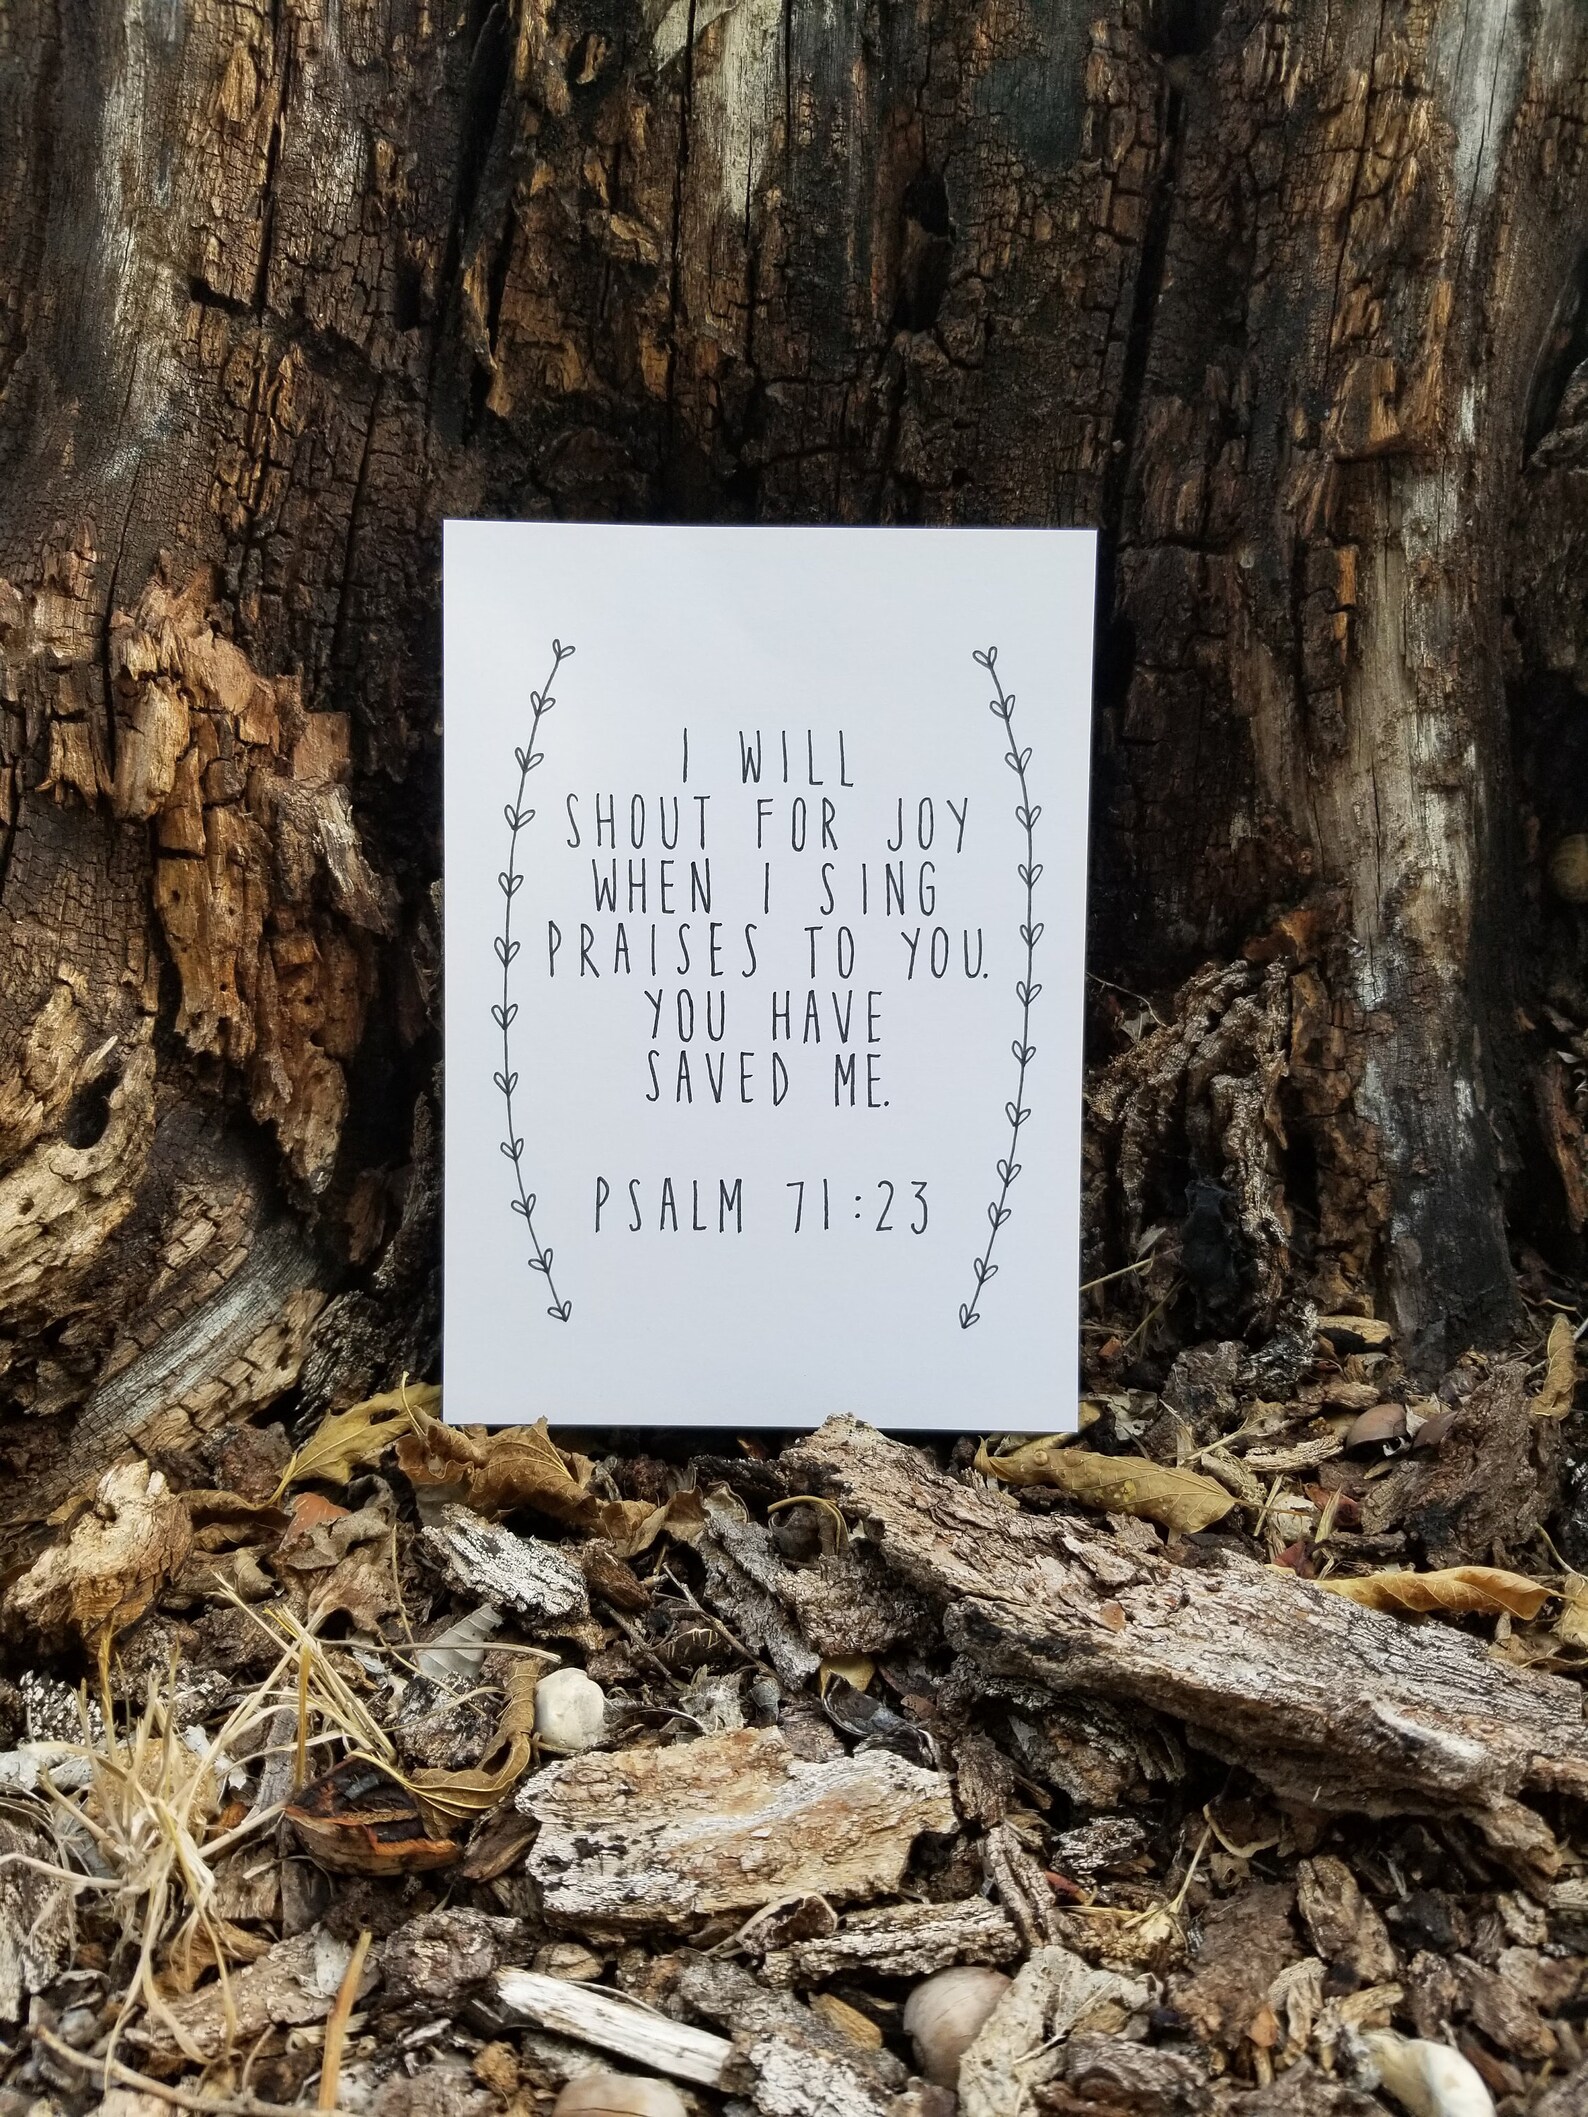 I WILL
SHOUT FOR JOY
WHEN I SING
PRAISES TO YOU.
YOU HAVE
SAVED ME.
PSALM 71:23